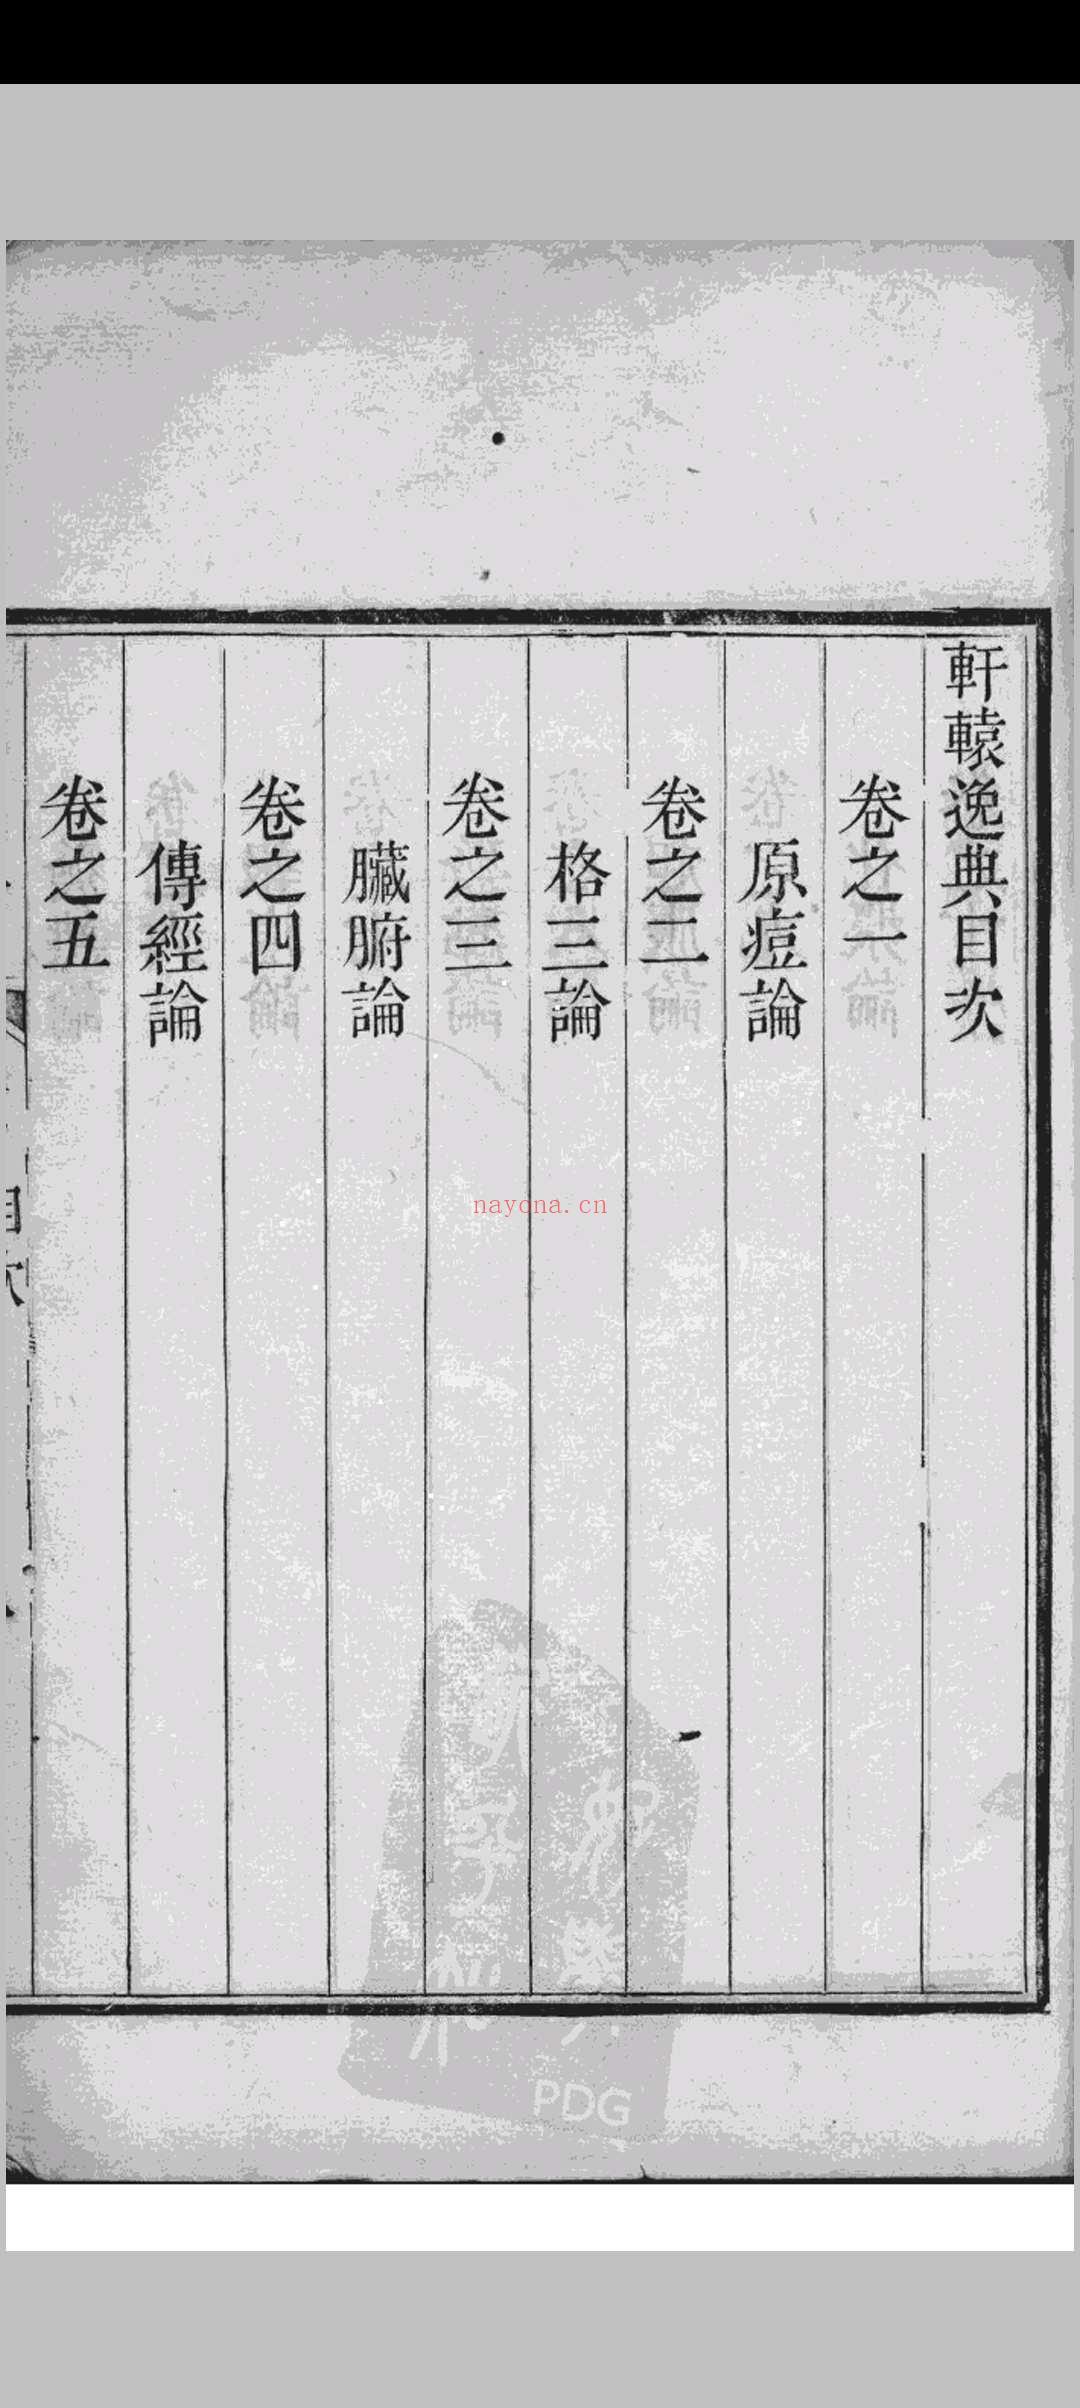 軒轅逸典目次
卷之一
原痘論
卷之二
格三論
卷之三
臟腑論
卷之四
傳經論
卷之五
目次
nayona.cn
PDG